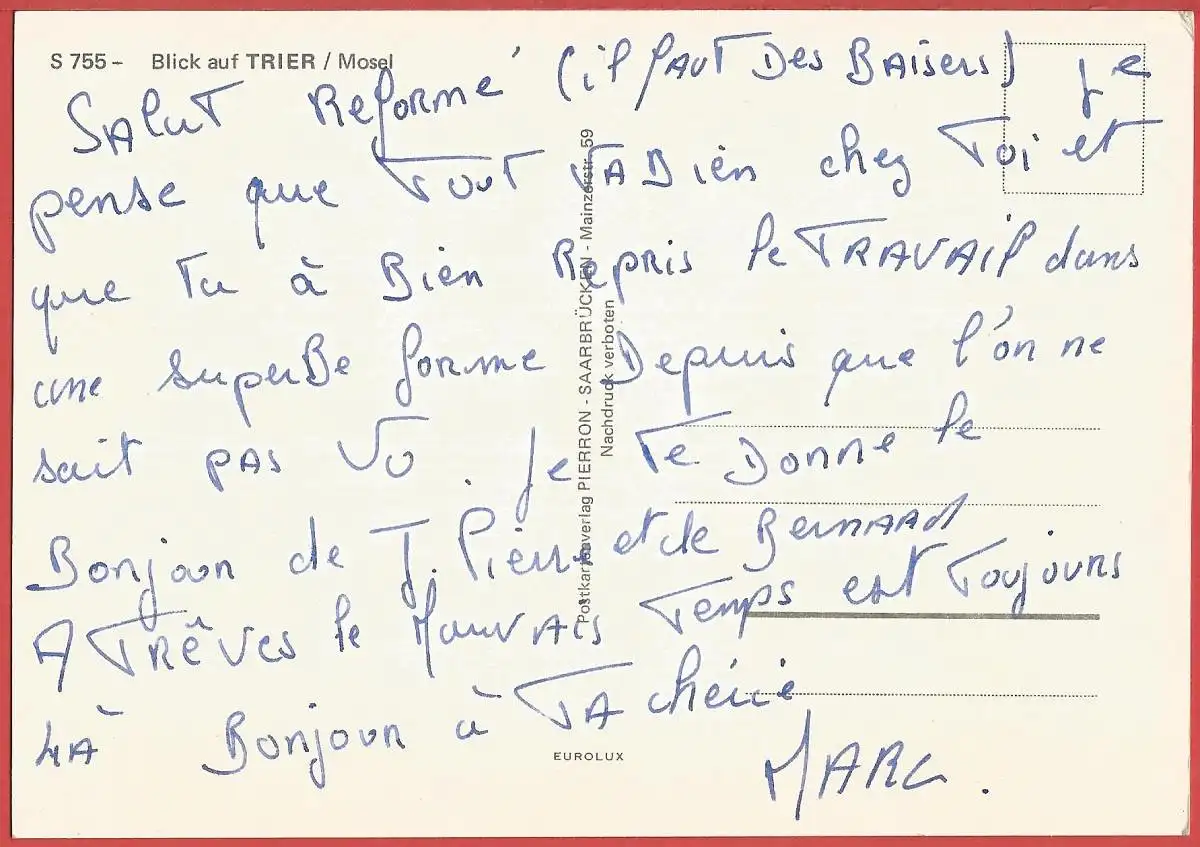 S 755 – Blick auf TRIER / Mosel
Salut Reformé (il faut Des Baisers) je
pense que Tout va Bien chez Toi et
que Tu à Bien Repris le TRAVAil dans
une superBe forme Depuis que l'on ne
sait pas VU. je Te Donne le
Bonjour de J. Pierre et de Bernard
A Trêves le Mauvais Temps est Toujours
LÀ Bonjour à TA chérie
MARC.
Postkartenverlag PIERRON - SAARBRÜCKEN - Mainzerstr. 59
Nachdruck verboten
EUROLUX